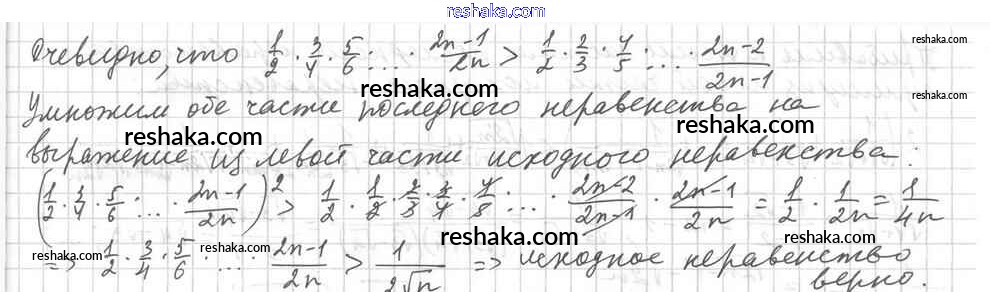 reshaka.com
Очевидно, что 1/2 · 3/4 · 5/6 · ... · (2n-1)/2n > 1/2 · 2/3 · 4/5 · ... · (2n-2)/(2n-1)
reshaka.com
reshaka.com
reshaka.com
Умножим обе части последнего неравенства на
reshaka.com
reshaka.com
выражение из левой части исходного неравенства:
(1/2 · 3/4 · 5/6 · ... · (2n-1)/2n)² > 1/2 · 1/2 · 2/3 · 3/4 · 4/5 · ... · (2n-2)/(2n-1) · (2n-1)/2n = 1/2 · 1/2n = 1/4n
reshaka.com
reshaka.com
reshaka.com
reshaka.com
=> 1/2 · 3/4 · 5/6 · ... · (2n-1)/2n > 1/(2√n) => исходное неравенство
верно.
reshaka.com